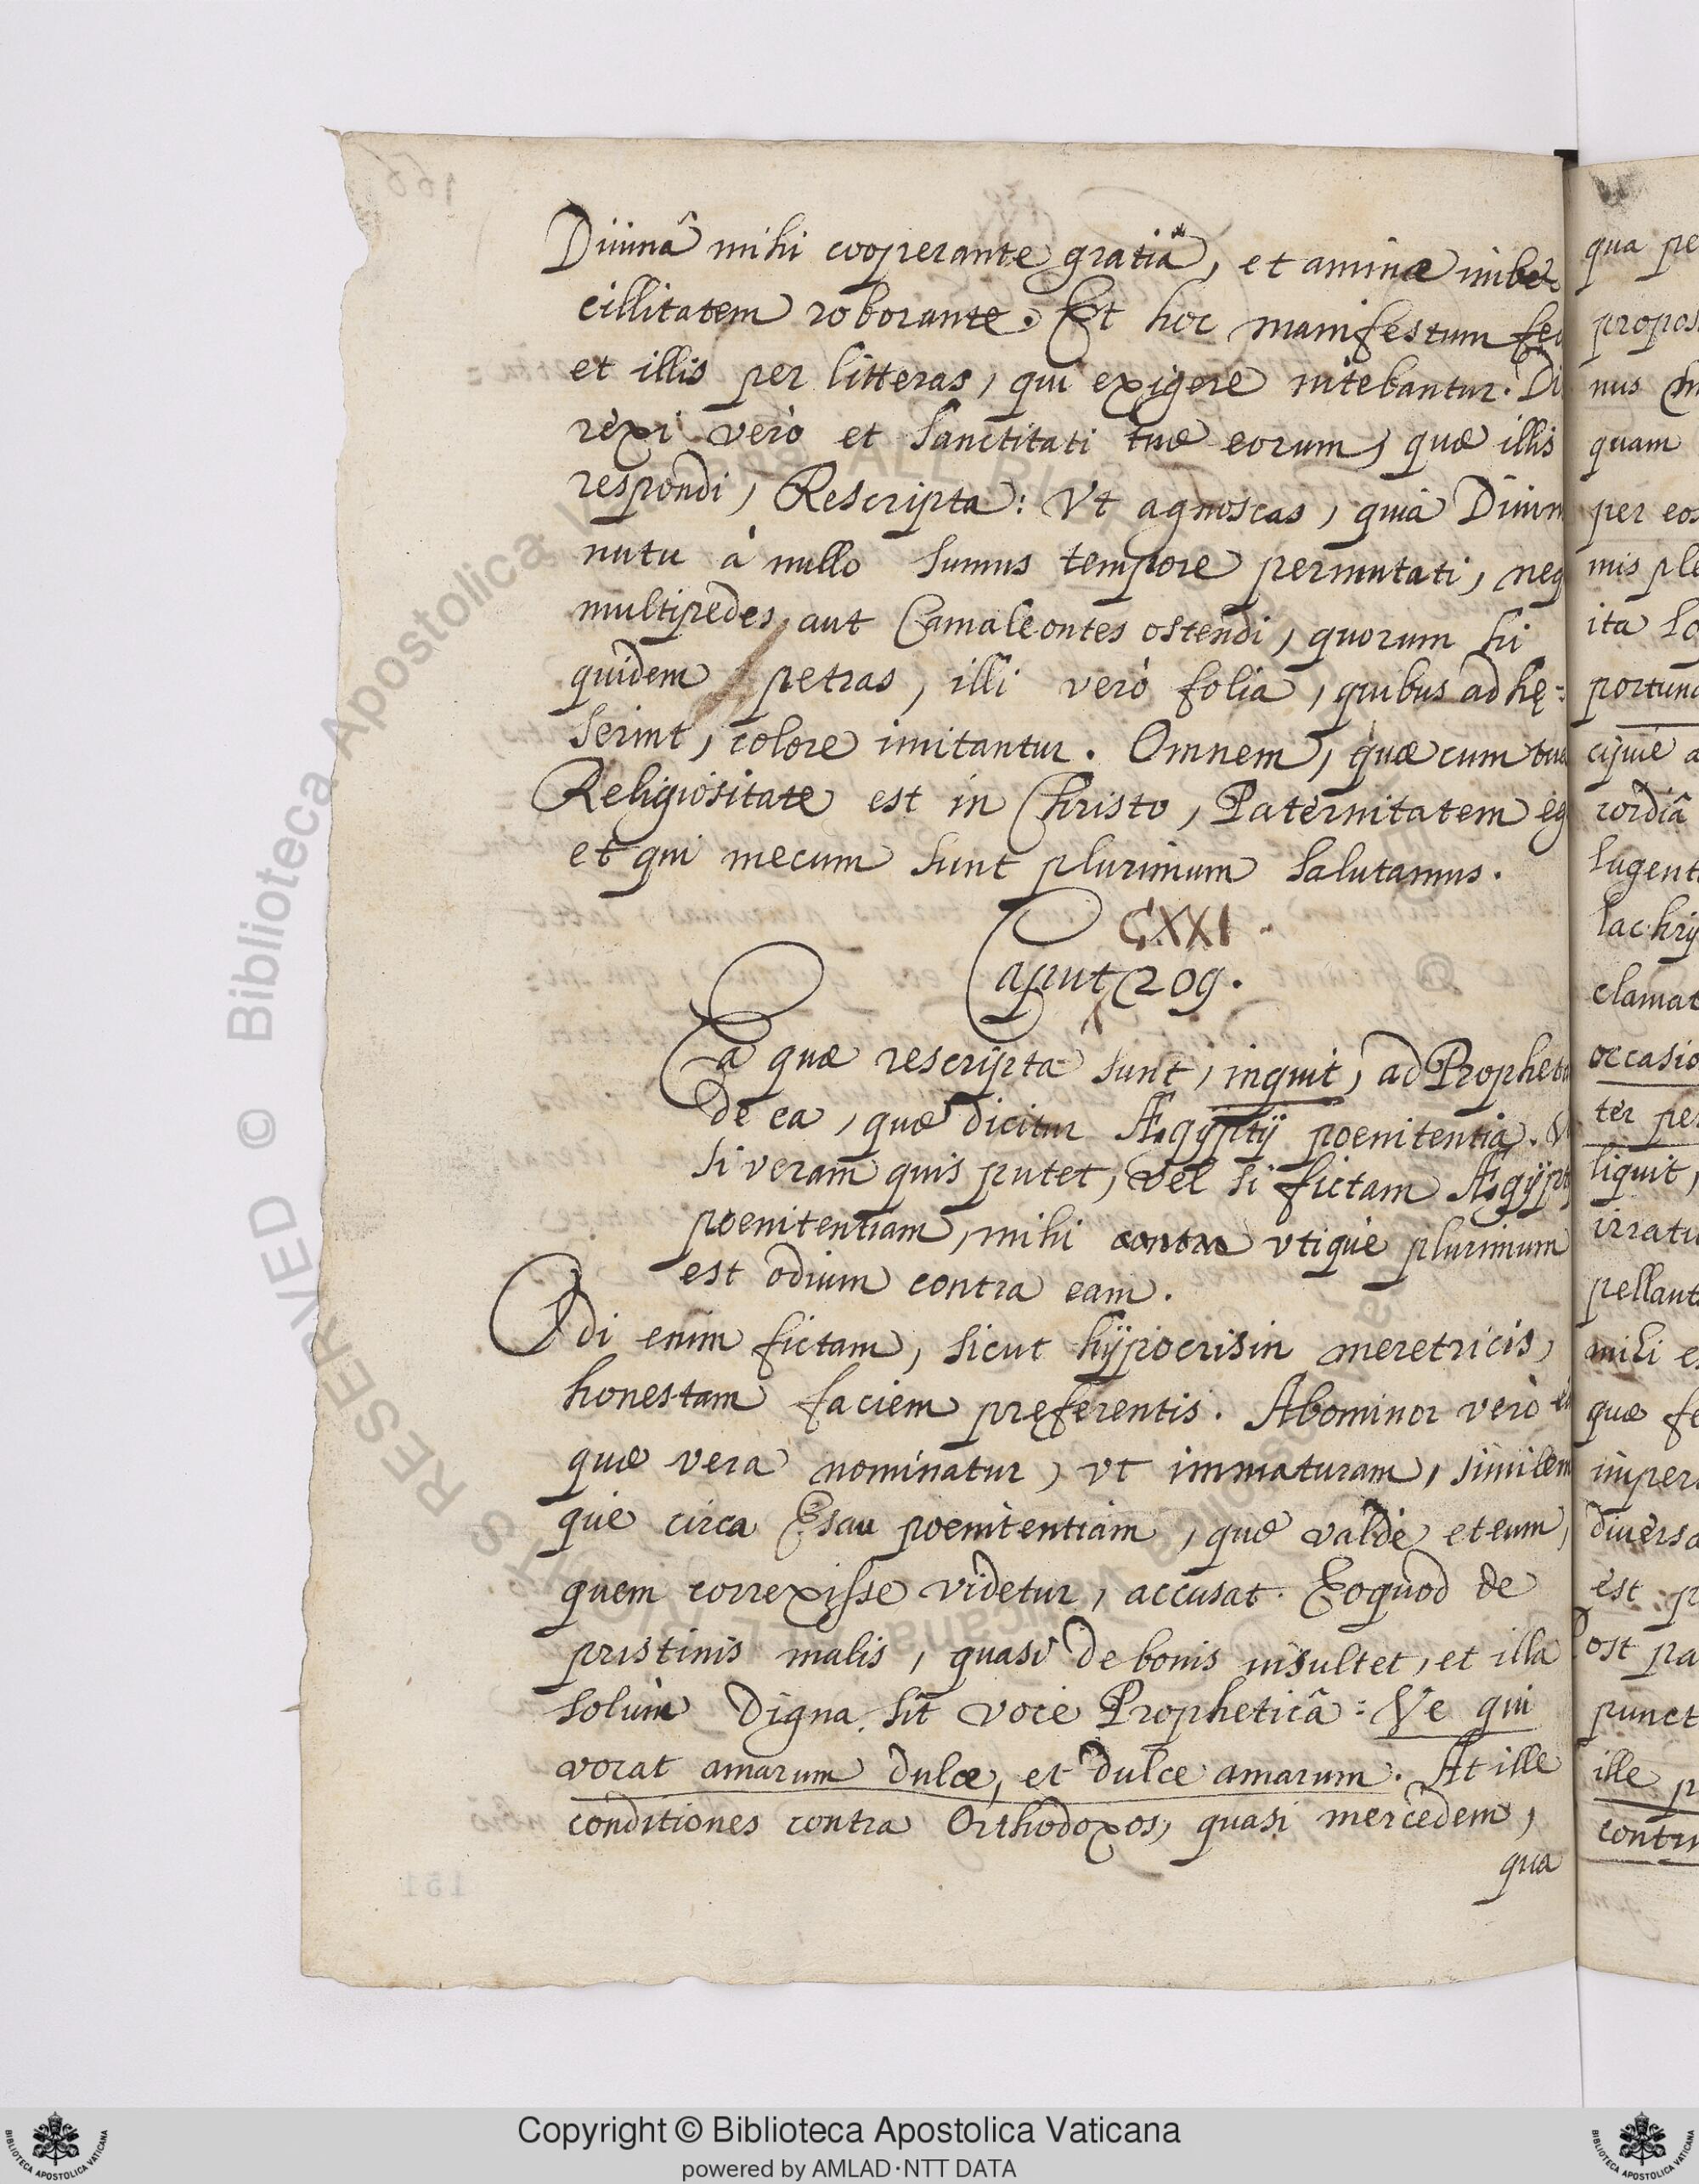 Diuinâ mihi cooperante gratiâ, et animæ imbe
cillitatem roborante. Et hoc manifestum feci
et illis per litteras, qui exigere nitebantur. Di
rexi verò et Sanctitati tuæ eorum, quæ illis
respondi, Rescripta: Vt agnoscas, quià Diuin
nutu à nullo sumus tempore permutati, neq
multipedes, aut Camaleontes ostendi, quorum hi
quidem petras, illi verò folia, quibus adhę:
serint, colore imitantur. Omnem, quæ cum tua
Religiositate est in Christo, Paternitatem eg
et qui mecum sunt plurimum salutamus.
CXXI.
Caput 209.
Ea quæ rescripta sunt, inquit, ad Propheta
de ea, quæ dicitur Ægyptij poenitentia. V
si veram quis putet, vel si fictam Ægypt
poenitentiam, mihi contra vtique plurimum
est odium contra eam.
Odi enim fictam, sicut hypocrisin meretricis,
honestam faciem preferentis. Abominor verò eà
quæ vera nominatur, vt immaturam, similem
que circa Esau poenitentiam, quæ valdè et eum,
quem correxisse videtur, accusat. Eoquod de
pristinis malis, quasi de bonis insultet, et illa
solùm digna sit voce Propheticâ: Ve qui
vocat amarum dulce, et dulce amarum. At ille
conditiones contra Orthodoxos, quasi mercedem,
qua
qua pe
propos
nus
quam
per eos
mis ple
ita so
portuna
cipue a
cordiâ
lugent
lachry
clamat
occasio
ter per
liquit,
irratu
pellant
mihi es
quæ fe
imper
diuersa
est p
Post pa
punct
ille p
contin
166
151
© Biblioteca Apostolica Vaticana ALL RIGHTS RESERVED
Copyright © Biblioteca Apostolica Vaticana
powered by AMLAD·NTT DATA
BIBLIOTECA APOSTOLICA VATICANA
BIBLIOTECA APOSTOLICA VATICANA